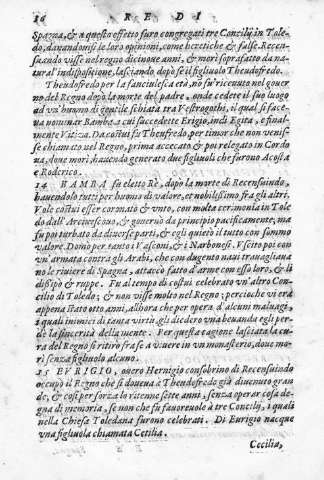 16 R E D I
Spagna, & a questo effetto furo congregati tre Concilij in Tole-
do, dannandosi le loro opinioni, come heretiche & false. Recen-
suindo visse nel regno dicinove anni, & morì soprafatto da na
tural' indisposizione, lasciando dopo se il figliuolo Theudofredo.
Theudofredo per la fanciulesca età, no fu ricevuto nel gover
no del Regno dopò la morte del padre, onde cedette il suo luogo
ad un' huomo di gentile schiatta tra Vestrogothi, il qual si facè-
va nominar Bamba, a cui succedette Erigio, indi Egita, e final-
mente Vitiza. Da costui fu Theufredo, per timor che non venis-
se chiamato nel Regno, prima accecato & poi relegato in Cordo
ua, done morì, hauendo generato due figliuoli che furono Acosta
e Roderico.
14 BAMBA fu eletto Rè, dopo la morte di Recensuindo,
hauendolo tutti per huomo di valore, et nobilissimo fra gli altri.
Vole costui esser coronato & unto, con molta cerimonia in Tole
do dall' Arcivescovo, & governò da principio pacificamente, ma
fu poi turbato da diverse parti, & egli quietò il tutto con sommo
valore. Domò per tanto i Vasconi, & i Narbonesi. Uscito poi con
un' armata contra gli Arabi, che con dugento navi travagliava
no le riviere di Spagna, attaccò fatto d'arme con esso loro, & li
dissipò & ruppe. Fu al tempo di costui celebrato un' altro Con-
cilio di Toledo; & non visse molto nel Regno; percioche vi era
appena stato otto anni, allhora che per opera d'alcuni malvagi,
i quali inimici di tanta virtù, gli diedero una bevanda egli per-
de la sincerità della mente. Per questa cagione lasciata la cu-
ra del Regno si ritirò frase a vivere in un monasterio, dove mo-
rì senza figliuolo alcuno.
15 EURIGIO, overo Hernigio consobrino di Recensuindo
occupò il Regno che si doveva à Theudofredo già divenuto gran
de, & così per forza lo ritenne sette anni, senza operar cosa de-
gna di memoria, se non che fu favorevole à tre Concilij, i quali
nella Chiesa Toledana furono celebrati. Di Eurigio nacque
una figliuola chiamata Cetilia.
Cecilia,